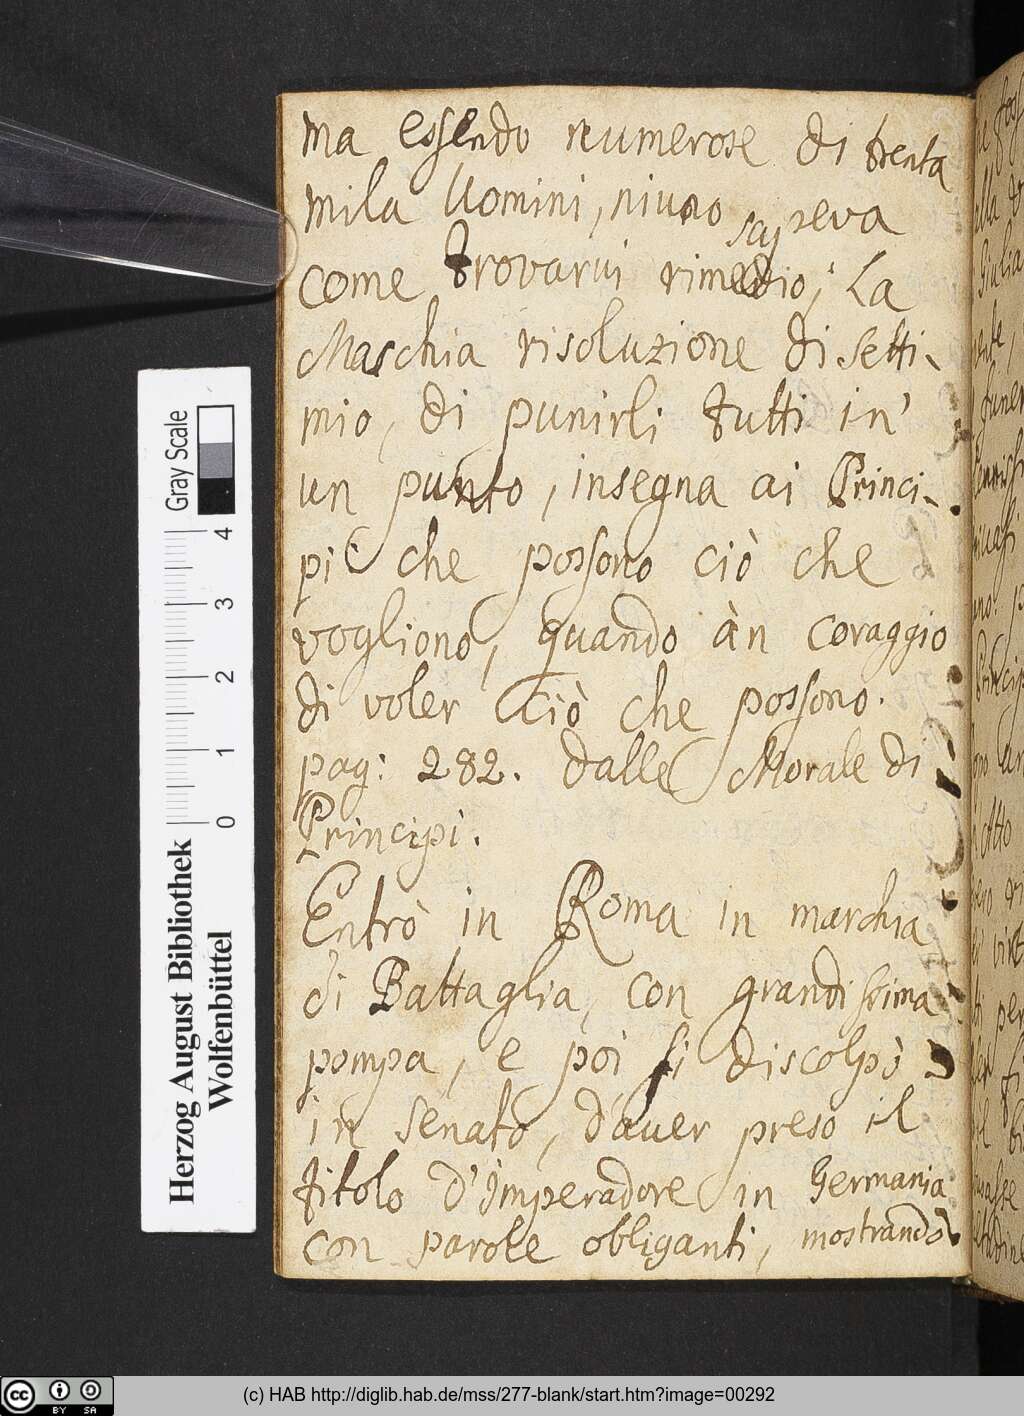 ma essendo numerose di trenta
mila Uomini, niuno sapeva
come trovarvi rimedio; La
Maschia risoluzione di Setti-
mio, di punirli tutti in'
un punto, insegna ai Princi-
pi che possono ciò che
vogliono, quando àn coraggio
di voler ciò che possono.
pag: 282. dalle Morale di
Principi.
Entrò in Roma in marchia
di Battaglia, con grandissima
pompa, e poi si discolpò
in senato, d'auer preso il
titolo d'Imperadore in Germania
con parole obliganti, mostrando
Gray Scale
4
3
2
1
0
Herzog August Bibliothek
Wolfenbüttel
cc BY SA
(c) HAB http://diglib.hab.de/mss/277-blank/start.htm?image=00292